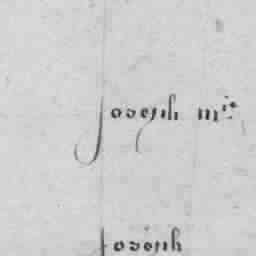 Joseph m^ie
Joseph